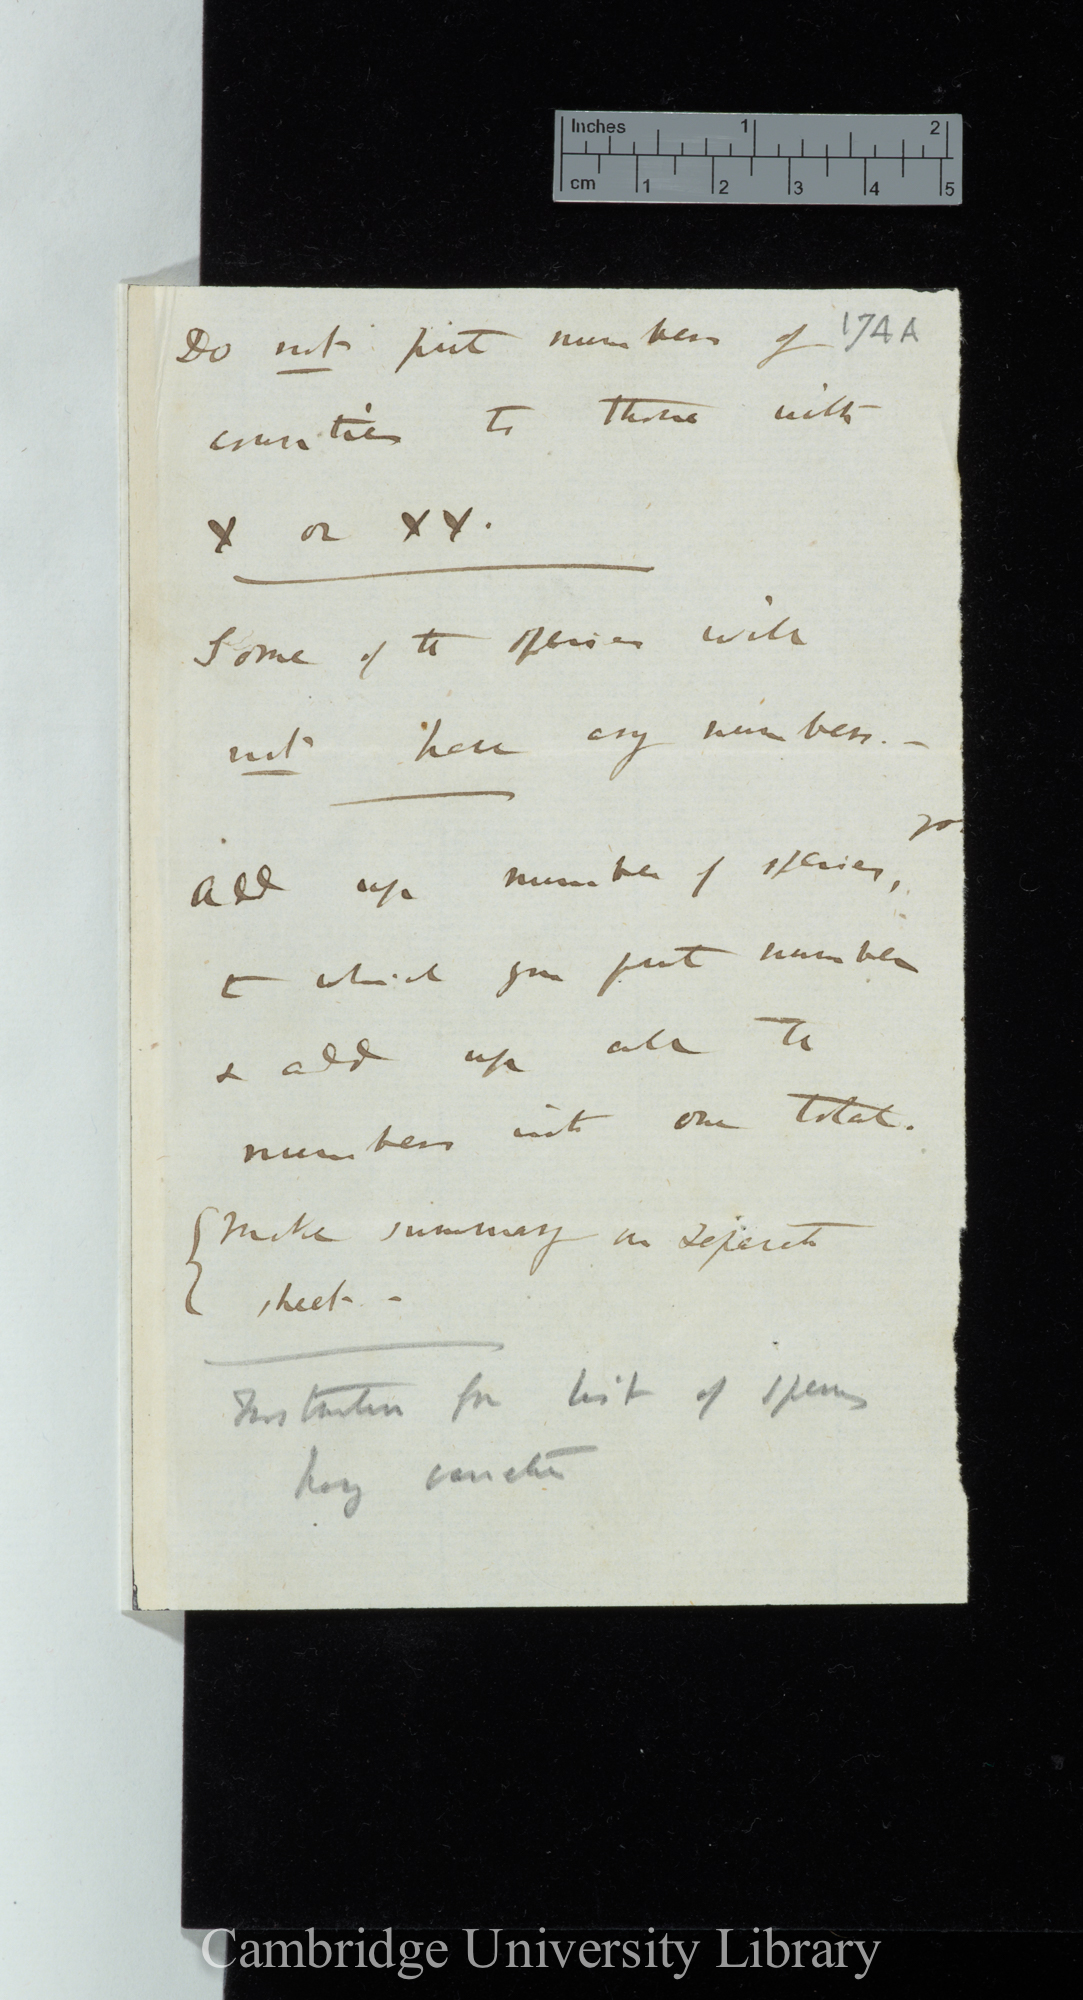 Inches 1 2
cm 1 2 3 4 5
174A
Do not put numbers of
counties to those with
X or XX.
Some of the species will
not have any numbers. —
Add up number of species,
to which you put number
& add up all the
numbers into one total.
{Make summary on separate
sheet. —
Instruction for list of species
having varieties
Cambridge University Library